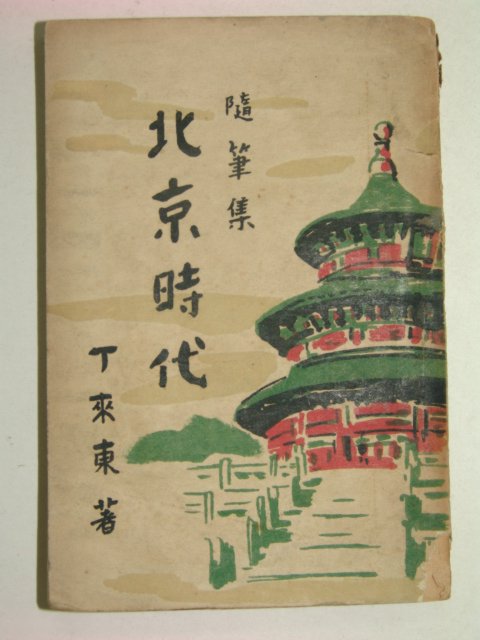 隨筆集
北京時代
丁來東 著